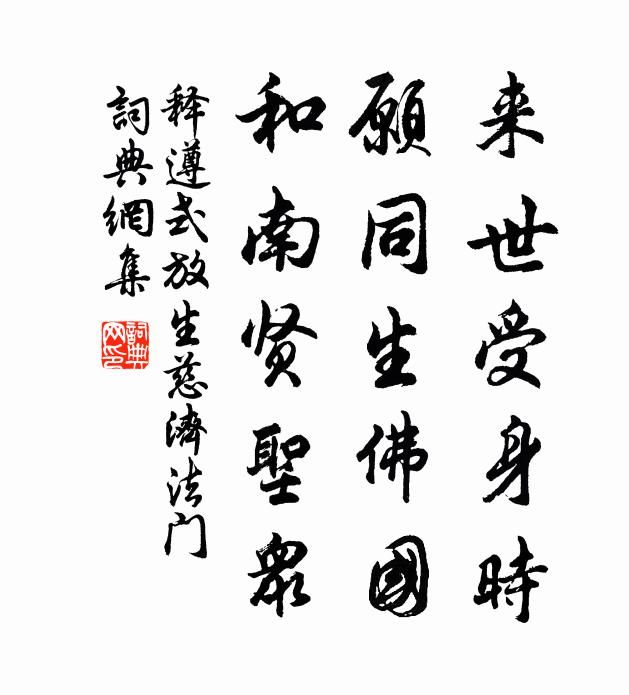 来世受身時
願同生佛國
和南贤聖眾
释遵式放生慈濟法门
詞典網集
詞典網印